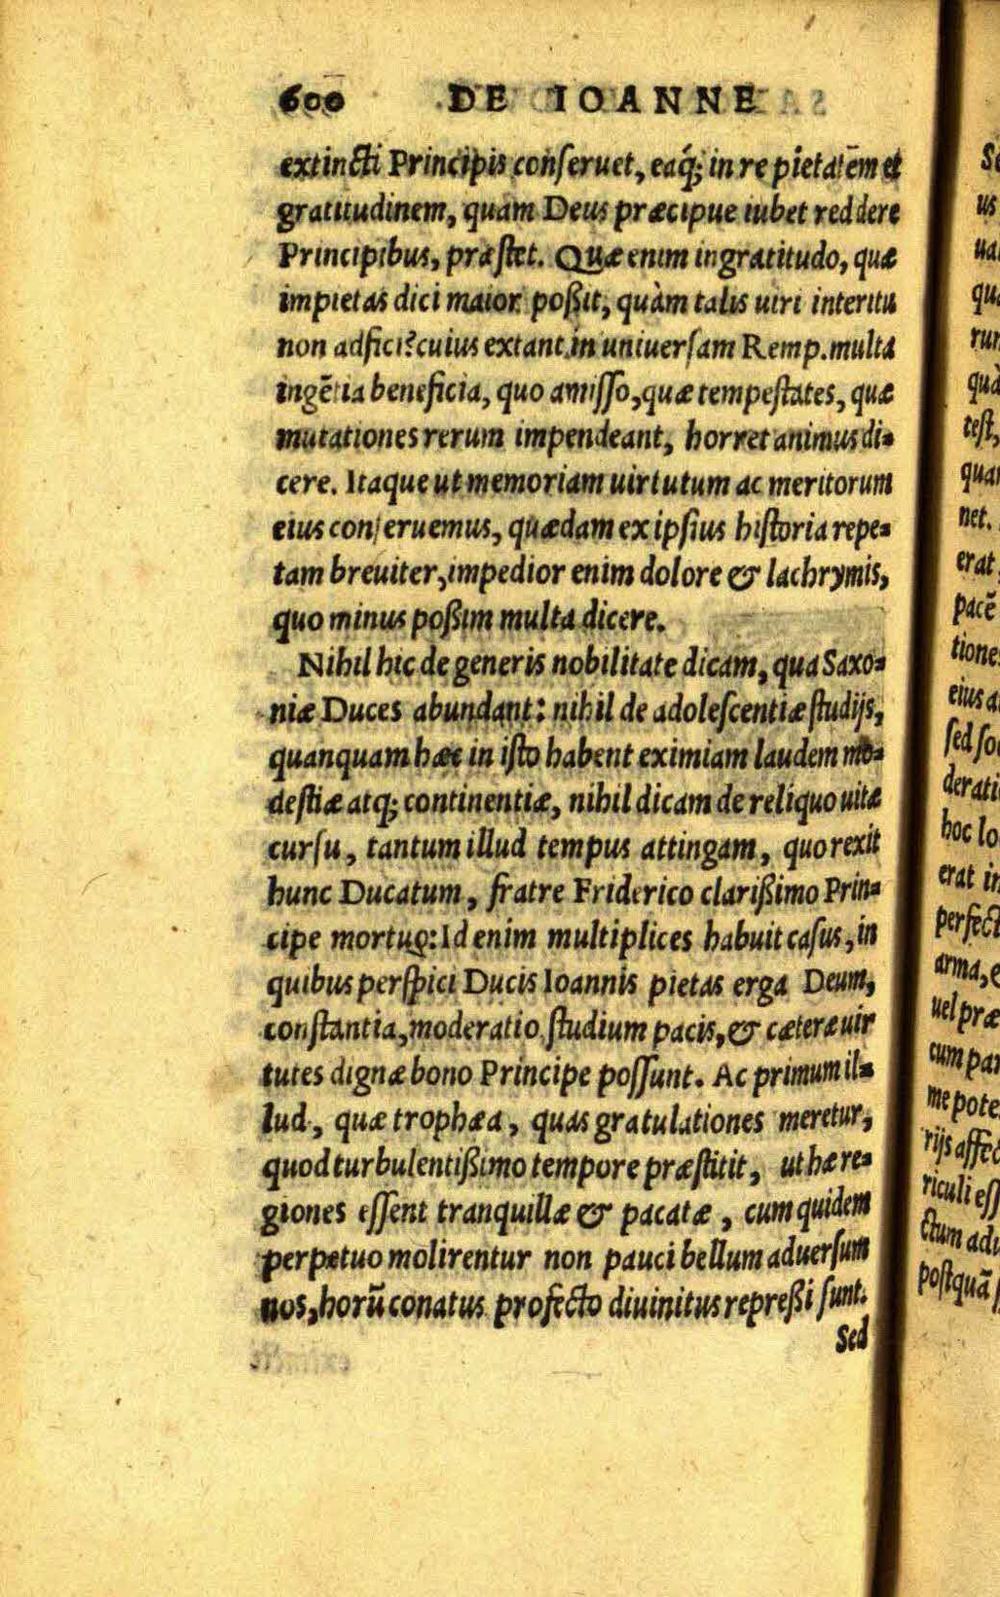 600 DE IOANNE
extincti Principis conſeruet, eaq́; in re pietatẽm et
gratitudinem, quam Deus præcipue iubet reddere
Principibus, præſtet. Quæ enim ingratitudo, quæ
impietas dici maior poßit, quàm talis uiri interitu
non adfici? cuius extant in uniuerſam Remp. multa
ingẽtia beneficia, quo amiſſo, quæ tempeſtates, quæ
mutationes rerum impendeant, horret animus di-
cere. Itaque ut memoriam uirtutum ac meritorum
eius conſeruemus, quædam ex ipſius hiſtoria repe-
tam breuiter, impedior enim dolore & lachrymis,
quo minus poßim multa dicere.
Nihil hic de generis nobilitate dicam, qua Saxo-
niæ Duces abundant: nihil de adoleſcentiæ ſtudijs,
quanquam hæc in iſto habent eximiam laudem mo-
deſtiæ atq; continentiæ, nihil dicam de reliquo uitæ
curſu, tantum illud tempus attingam, quo rexit
hunc Ducatum, fratre Friderico clarißimo Prin-
cipe mortuo: Id enim multiplices habuit caſus, in
quibus perſpici Ducis Ioannis pietas erga Deum,
conſtantia, moderatio ſtudium pacis, & cæteræ uir
tutes dignæ bono Principe poſſunt. Ac primum il-
lud, quæ trophæa, quas gratulationes meretur,
quod turbulentißimo tempore præſtitit, ut hæ re-
giones eſſent tranquillæ & pacatæ, cum quidem
perpetuo molirentur non pauci bellum aduerſum
nos, horũ conatus profecto diuinitus repreßi ſunt.
Sed